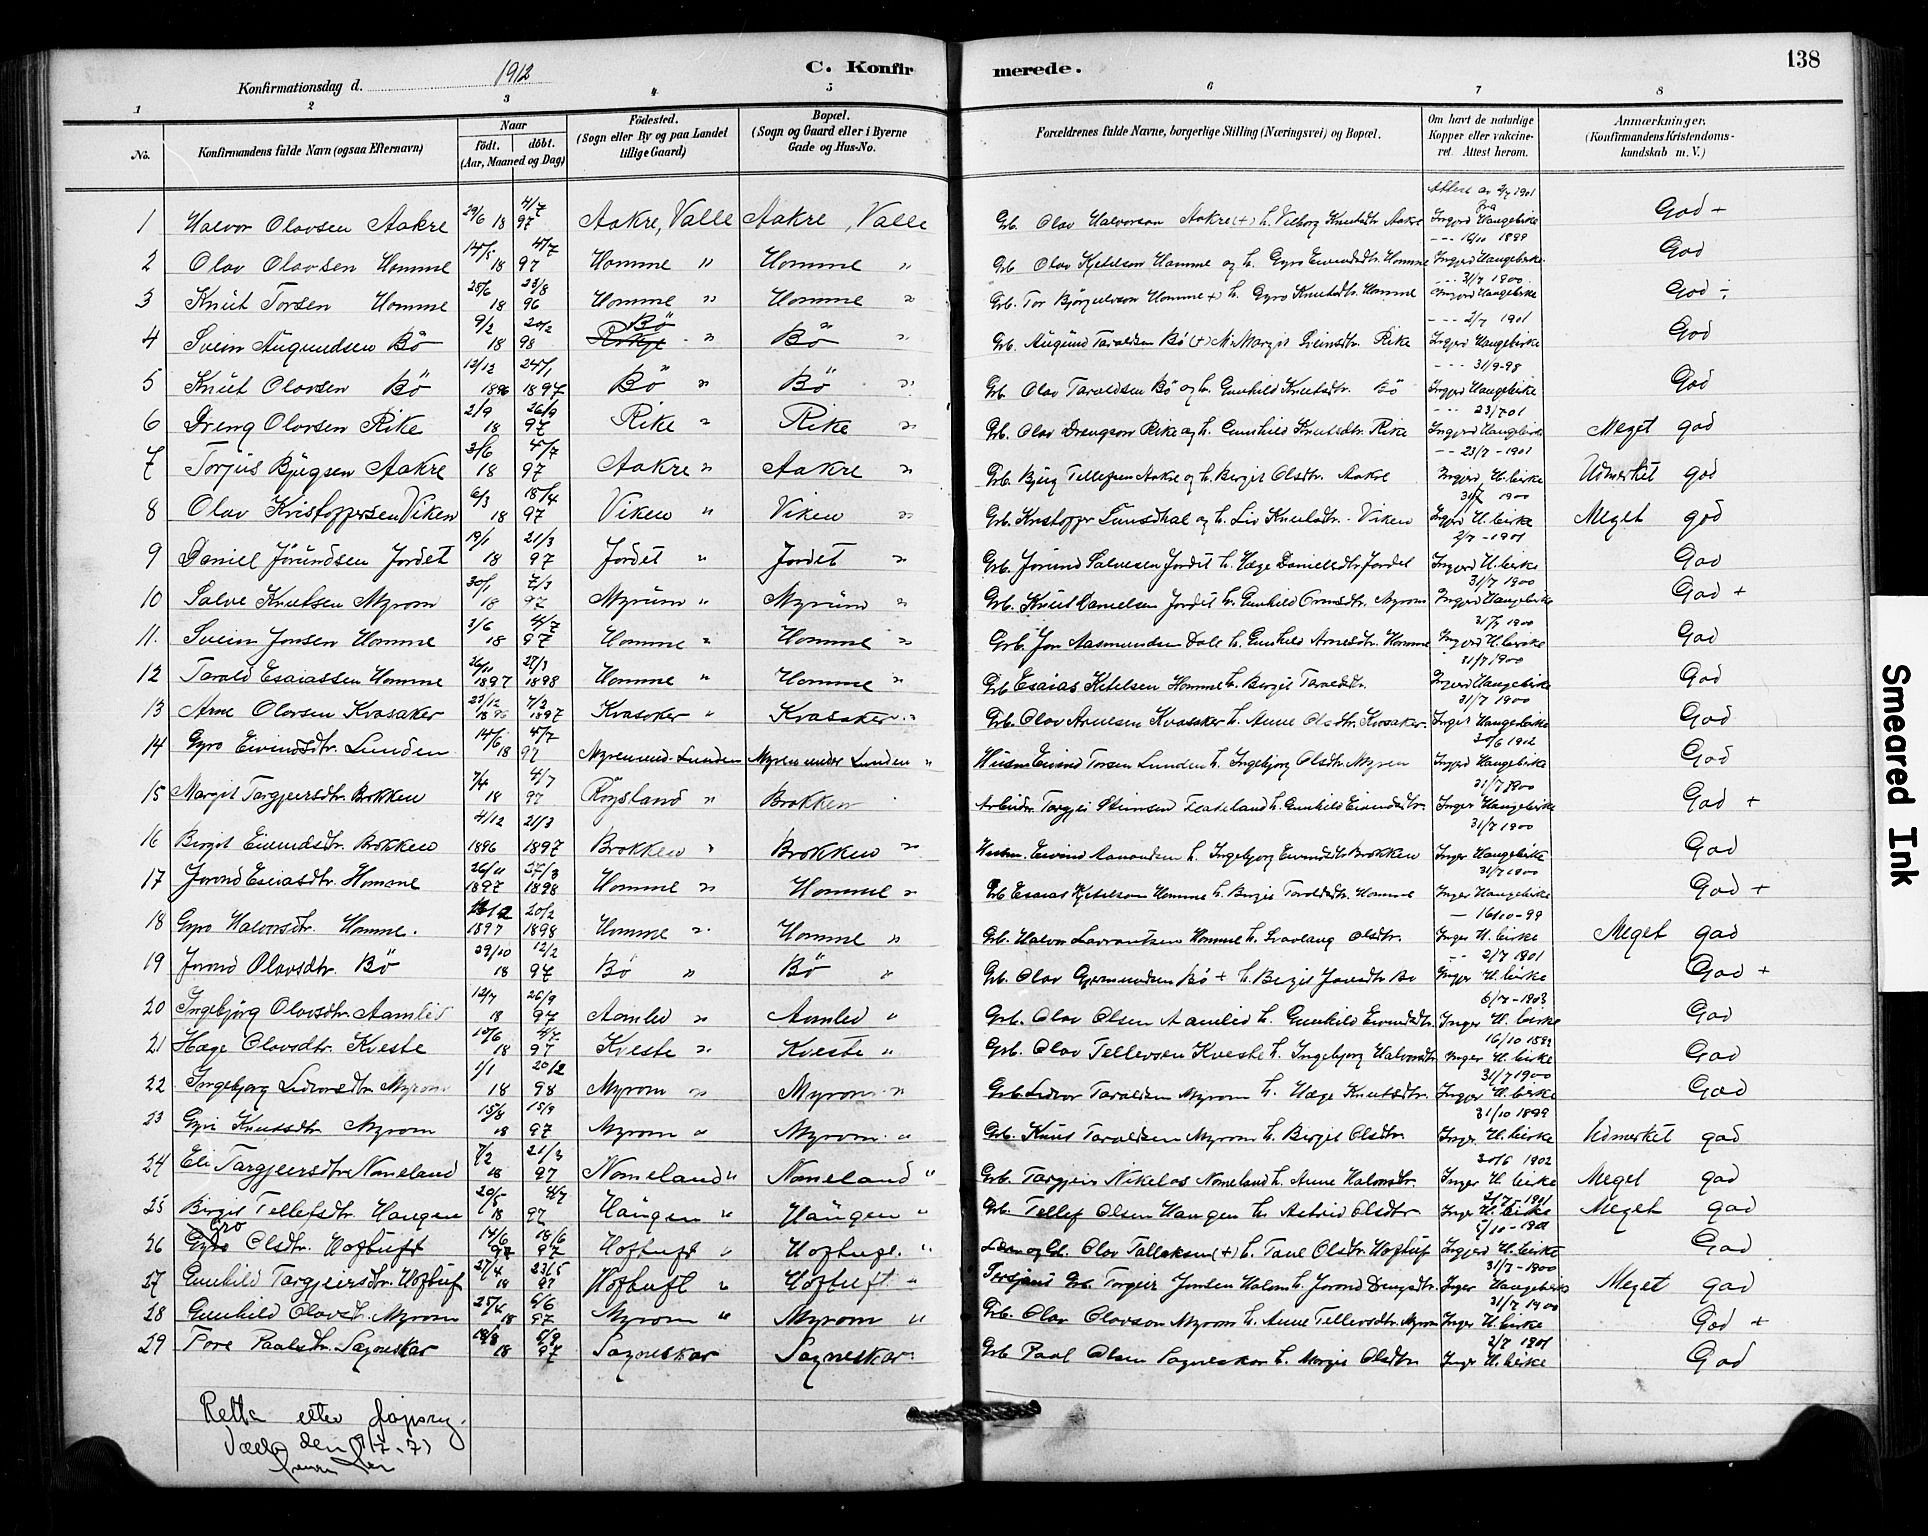 138
Konfirmationsdag d. 1912
C. Konfirmerede.
1 2 3 4 5 6 7 8
No. Konfirmandens fulde Navn (ogsaa Efternavn) Naar født. døbt. (Aar, Maaned og Dag) Fødested. (Sogn eller By og paa Landet tillige Gaard) Bopæl. (Sogn og Gaard eller i Byerne Gade og Hus-No. Forældrenes fulde Navne, borgerlige Stilling (Næringsvei) og Bopæl. Om havt de naturlige Kopper eller vakcineret. Attest herom. Anmærkninger. (Konfirmandens Kristendomskundskab m. V.)
1 Halvor Olavsen Aakre 29/6 18 4/7 97 Aakre, Valle Aakre, Valle Grb. Olav Halvorson Aakre (+) h. Vilborg Knutsdtr Aakre Attest av 2/7 1901 fra Ingerd Haugebirke God +
2 Olav Olavsen Homme 14/5 18 4/7 97 Homme " Homme " Grb. Olav Ketelson Homme og h. Gyro Eivindsdtr. Homme --- 16/10 1899 Ingerd Haugebirke God
3 Knut Torsen Homme 28/6 18 23/8 96 Homme " Homme " Grb. Tor Bjørgulvson Homme + h. Gyro Knutsdtr. Homme --- 31/7 1900 Ingerd Haugebirke God ÷
4 Svein Augundsen Bö 9/2 18 20/2 98 Bö " Bö " Grb. Augund Taraldsen Bö (+) Margit Sveinsdtr. Rike --- 2/7 1901 Ingerd Haugebirke God
5 Knut Olavsen Bö 12/12 1896 24/1 1897 Bö " Bö " Grb. Olav Taraldsen Bö og h. Gunhild Knutsdtr. Bö --- 31/9-98 Ingerd Haugebirke God
6 Dreng Olavsen Rike 2/9 18 26/9 97 Rike " Rike " Grb. Olav Drengson Rike og h. Gunhild Knutsdtr. Rike --- 23/7 01 Ingerd Haugebirke Meget god
7 Torjus Bjugsen Aakre 3/6 18 4/7 97 Aakre " Aakre " Grb. Bjug Tellefsen Aakre og h. Bergit Olsdtr. Aakre -- 23/7 - 1901 Ingerd H. birke Udmerket god
8 Olav Kristoppersen Viken 6/3 18 18/4 97 Viken " Viken " Grb. Kristoppr Tunsdhal og h. Liv Knutsdtr. Viken 31/7 1900 Ingerd H. birke Meget god
9 Daniel Jörundsen Jordet 19/1 18 21/3 97 Jordet " Jordet " Grb. Jörund Salvesen Jordet h. Hæge Danielsdtr. Jordet 2/7 - 1901 Ingerd H. birke God
10 Salve Knutsen Myrom 30/1 18 7/3 97 Myrum " Myrum " Grb. Knut Danielsen Jordet h. Gunhild Ormsdtr. Myrom 31/7 1900 Ingerd Haugebirke God +
11. Svein Jonsen Homme 3/6 18 4/7 97 Homme " Homme " Grb. Jon Aasmundsen Dale h. Gunhild Arnesdtr. Homme 31/7 1900 Ingerd H. birke God
12 Tarald Esaiassen Homme 26/11 1897 27/3 1898 Homme " Homme " Grb Esaias Ketelsen Homme h. Birgit Taraldsdtr. 31/7 1900 Ingerd Haugebirke God
13 Arne Olavsen Kvasaker 23/12 1896 7/2 1897 Kvasaker " Kvasaker " Grb. Olav Arnesen Kvasaker h. Anne Olsdtr. Kvasaker 31/7 1900 Inger Haugebirke God
14 Gyro Eivindsdtr. Lunden 14/6 18 4/7 97 Myren und. Lunden Myren under Lunden " Husm Eivind Torsen Lunden h. Ingebjorg Olsdtr. Myren 30/6 1902 Ingerd Haugebirke God
15 Margit Targjersdtr. Brokken 7/4 18 4/7 97 Röysland " Brokken Arbeider Targjei Steinsen Flateland h. Gunhild Eivindsdtr. 31/7 1900 Inger Haugebirke God +
16 Birgit Eivindsdtr. Brokken 4/12 1896 21/3 1897 Brokken " Brokken " Husm. Eivind Aanundsen h. Ingebjorg Eivindsdtr Brokken 31/7 1900 Inger Haugebirke God
17 Jorond Esaiasdtr. Homme 26/11 1897 27/3 1898 Homme " Homme " Grb Esaias Kjetelson Homme h. Birgit Taraldsdtr. Homme 31/7 1900 Inger Haugebirke God +
18 Gyro Halvorsdtr. Homme. 1897 20/2 1898 Homme " Homme " Grb. Halvor Lavrantsen Homme h. Sravlaug Olsdtr. — 16/10 - 99 Inger H. birke Meget god
19 Jorond Olavsdtr. Bö 29/10 18 12/2 97 Bö " Bö " Grb. Olav Gjermundsen Bö + h. Birgit Jonsdtr Bö -- 2/7 1901 Inger H. birke God +
20 Ingebjörg Olavsdtr. Aamlid 12/7 18 26/9 97 Aamled " Aamled " Grb. Olav Olsen Aamlid h. Gunhild Eivindsdtr 6/7 - 1903 Inger H. birke God
21 Hæge Olavsdtr. Kveste 10/6 18 4/7 97 Kveste " Kveste " Grb. Olav Tellevsen Kveste h. Ingebjorg Halvorsdtr 16/10 1899 Inger H. birke God
22 Ingebjorg Lidvorsdtr Myrom 1/1 18 20/2 98 Myrom " Myrom " Grb. Lidvor Taraldsen Myrom h. Hæge Knutsdtr. 31/7 1900 Inger H. birke God
23 Gyri Knutsdtr Myrom 15/8 18 15/9 97 Myrom " Myrom " Grb. Knut Taraldsen Myrom h. Birgit Olsdtr. 31/10 1899 Inger H. birke Udmerket god
24 Eli Targjeersdtr Nomeland 7/2 18 21/3 97 Nomeland " Nomeland " Grb. Targjeir Nikelos Nomeland h. Anne Halvorsdtr. 30/6 1902 Inger H. birke Meget god
25 Birgit Tellefsdtr. Haugen 20/5 18 4/7 97 Haugen " Haugen " Grb. Tellef Olsen Haugen h. Astrid Olsdtr 2/7 - 1901 Inger H. birke Meget god
26 Gro Olsdtr. Hoftuft 14/6 97 18/6 97 Hoftuft " Hoftuft " Olav Tallaksen (+) h. Tone Olsdtr Hoftuf 5/10 - 1901 Ingerd H. birke God
27 Gunhild Targjeirsdtr. Hoftuf 27/4 18 23/5 97 Hoftuft " Hoftuft " Grb. Torgeir Jonsen h. Jorond Drengsdtr. 31/7 - 1900 Inger Haugebirke Meget god
28 Gunhild Olavsdt. Myrom 25/4 18 6/6 97 Myrom " Myrom " Grb. Olav Olavson Myrom h. Anne Tellevsdtr. Myrom 31/7 1900 Inger H. birke God +
29 Tore Paalsdtr. Sagneskar 18 97 Sagneskar Sagneskar Grb Paal Olsen Sagneskar h. Margit Olsdtr 2/7 1901 Inger H. birke God
Retta etter
den
Smeared Ink